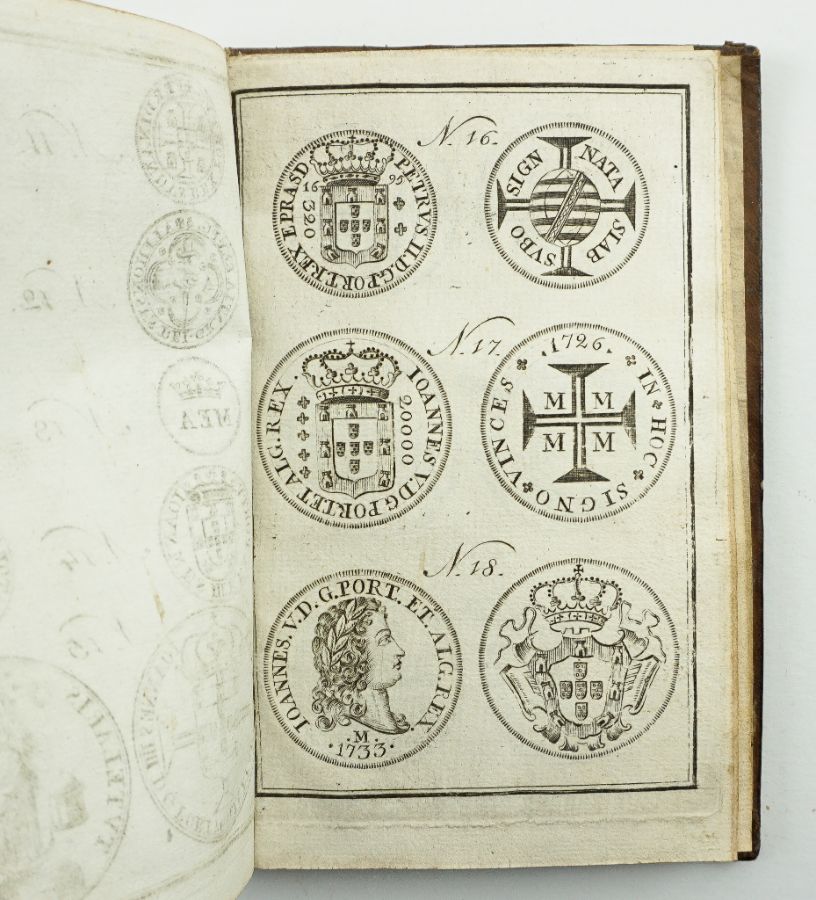 N. 16.
PETRVS II.D.G.PORT.REX EPRASD
16 95
320
SIGN NATA STAB SVBQ
N. 17.
IOANNES V.D.G.PORT.ET ALG.REX.
20000
.1726.
IN HOC SIGNO VINCES
M M
M M
N. 18.
IOANNES. V. D. G. PORT. ET. ALG. REX.
.M.
.1733.
MEA